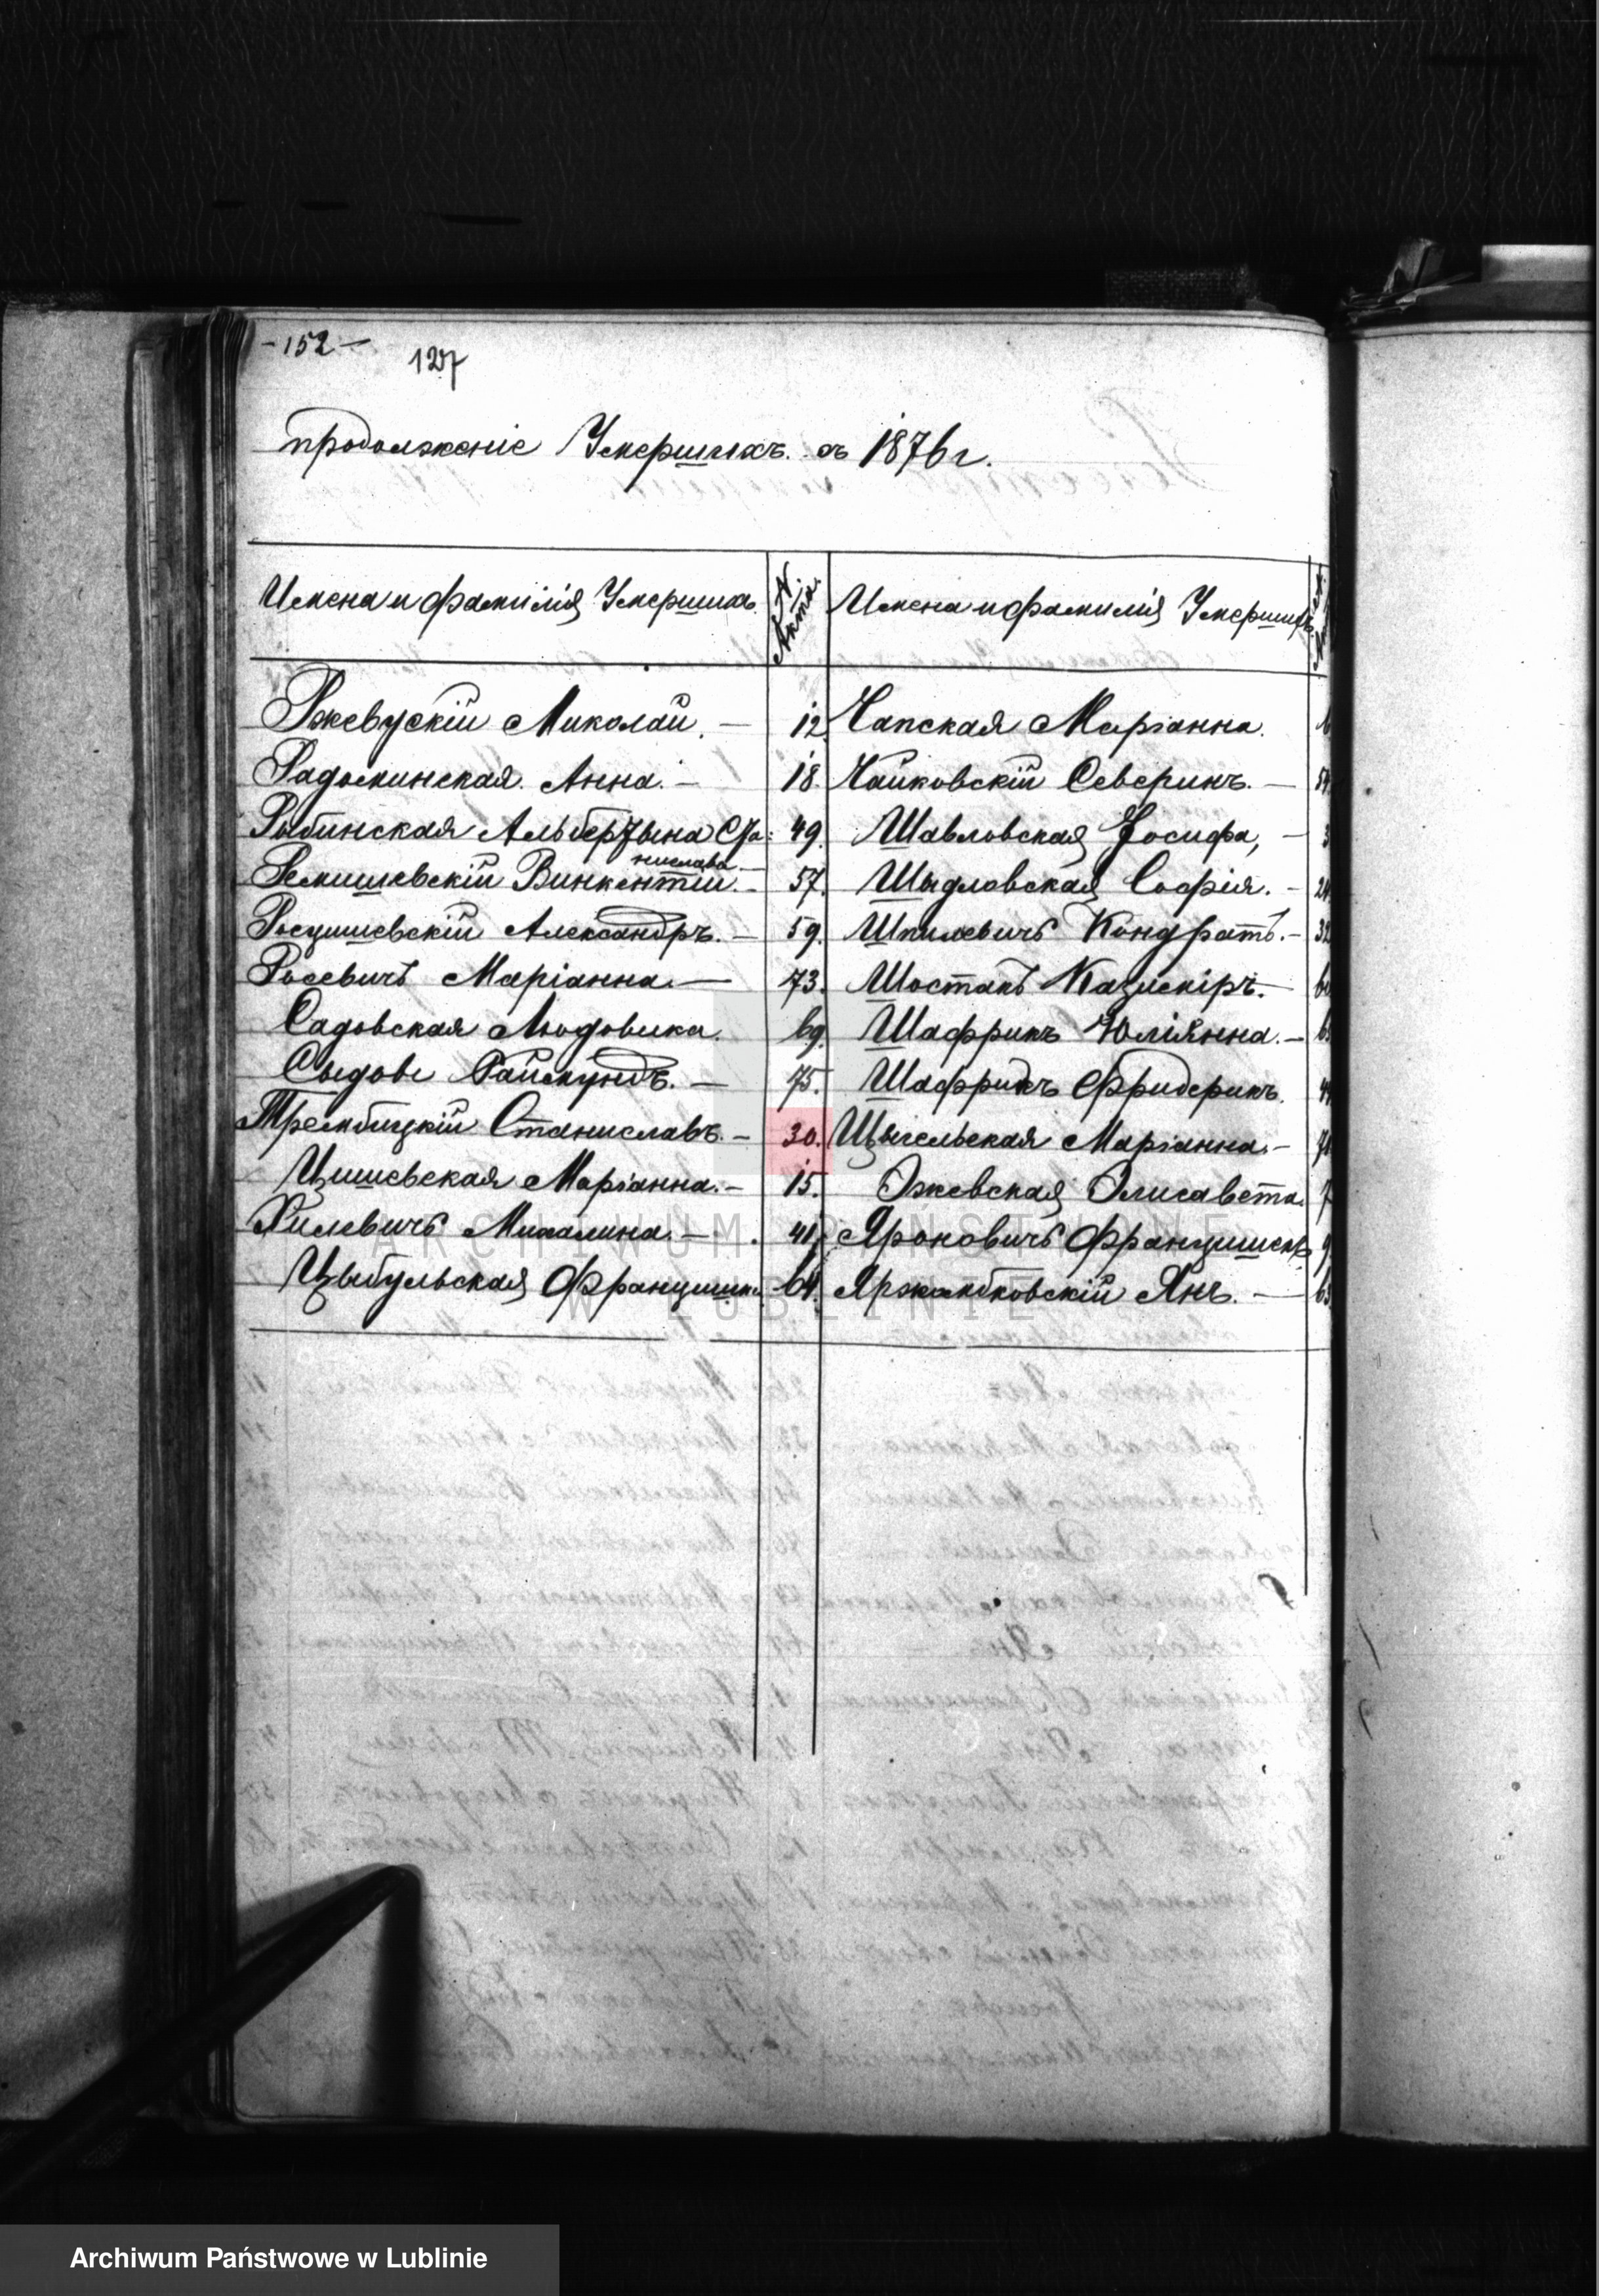 -152-
127
продолженіе Умершихъ. съ 1876 г.
Имена и фамилія Умершихъ. N. Акта. Имена и фамилія Умершихъ.
Ржевускій Миколай. — 12 Чапская Маріанна.
Радоминская Анна. — 18. Чайковскій Северинъ. —
Рыбинская Альбертына Ста= 49. Шавловская Іосифа, — 3
нислава —
Ремишевскій Винкентій. — 57. Шыдловская Софія. — 24
Росцишевскій Александръ. — 59. Шпилевичъ Кондратъ. — 32
Росевичъ Маріанна. — 73. Шостакъ Казиміръ. —
Садовская Людовика. 69. Шафрикъ Юліянна. —
Сыдове Раймундъ. — 75. Шафрикъ Фридерикъ.
Трембицкій Станиславъ. — 30. Щыгельская Маріанна. —
Цишевская Маріанна. — 15. Ожевская Элисавета. 7
Хилевичъ Михалина. — 41. Яроковичъ Францишекъ 9
Цыбульская Францишка 64. Яржамбковскій Янъ. —
ARCHIWUM PAŃSTWOWE
W LUBLINIE
Archiwum Państwowe w Lublinie